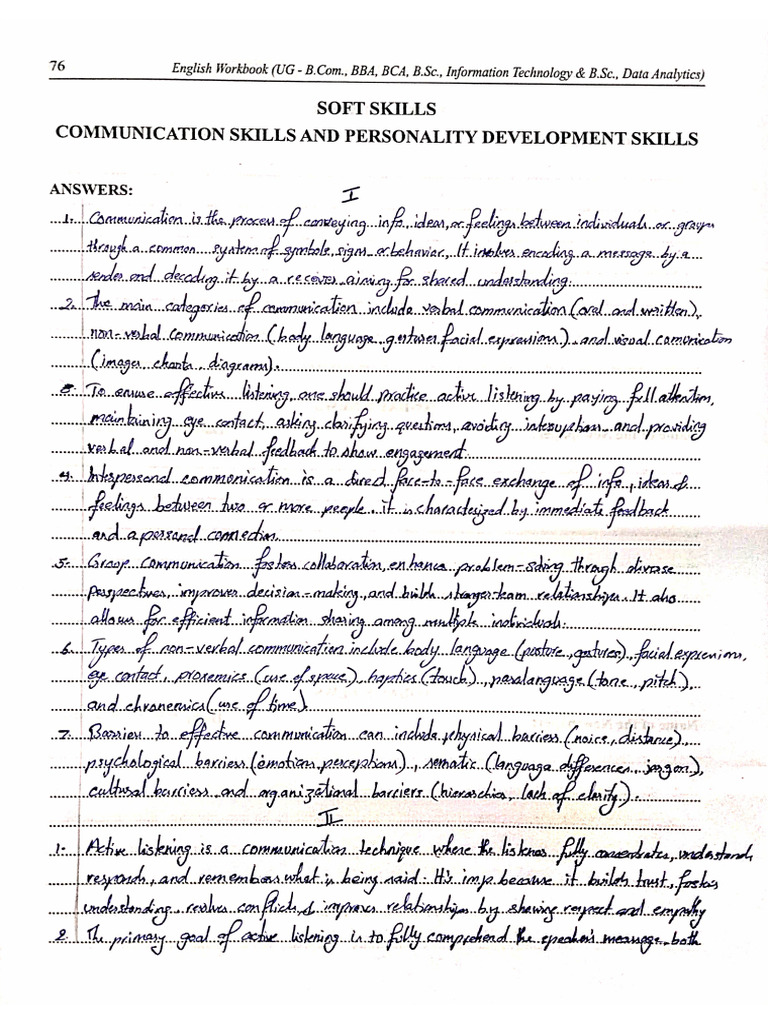 76
English Workbook (UG - B.Com., BBA, BCA, B.Sc., Information Technology & B.Sc., Data Analytics)
SOFT SKILLS
COMMUNICATION SKILLS AND PERSONALITY DEVELOPMENT SKILLS
ANSWERS:
I
1. Communication is the process of conveying info, ideas, or feelings between individuals or groups
through a common system of symbols, signs or behavior. It involves encoding a message by a
sender and decoding it by a recover aiming for shared understanding.
2. The main categories of communication include verbal communication (oral and written),
non-verbal communication (body language, gestures facial expressions), and visual comunication
(images charts, diagrams).
3. To ensure effective listening, one should practice active listening by paying full attention,
maintaining eye contact, asking clarifying questions, avoiding interruptions and providing
verbal and non-verbal feedback to show engagement.
4. Interpersonal communication is a direct face-to-face exchange of info, ideas &
feelings between two or more people. it is characterized by immediate feedback
and a personal connection.
5. Group communication fosters collaboration, enhance problem-solving through diverse
perspectives, improves decision-making, and builds stronger team relationships. It also
allows for efficient information sharing among multiple individuals.
6. Types of non-verbal communication include body language (posture, gestures), facial expressions,
eye contact, proxemics (use of space), haptics (touch), paralanguage (tone, pitch),
and chronemics (use of time).
7. Barriers to effective communication can include physical barriers (noice, distance),
psychological barriers (emotions, perceptions), sematic (language differences, jargon),
cultural barriers and organizational barriers (hierarchies, lack of clarity).
II
1. Active listening is a communication technique where the listener fully concentrates, understands,
responds, and remembers what is being said. It's imp because it builds trust, fosters
understanding, resolves conflicts & improves relationships by showing respect and empathy
2. The primary goal of active listening is to fully comprehend the speaker's message, both